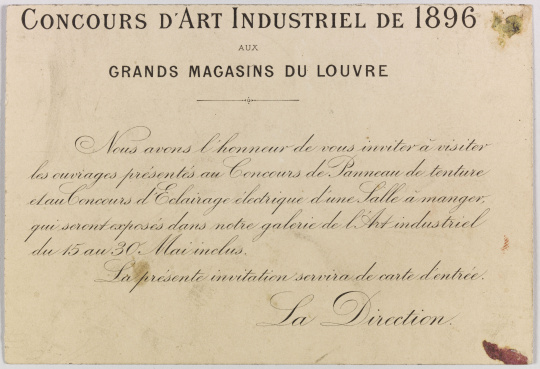 CONCOURS D'ART INDUSTRIEL DE 1896
AUX
GRANDS MAGASINS DU LOUVRE
Nous avons l'honneur de vous inviter à visiter
les ouvrages présentés au Concours de Panneau de tenture
et au Concours d'Eclairage électrique d'une Salle à manger,
qui seront exposés dans notre galerie de l'Art industriel
du 15 au 30 Mai inclus.
La présente invitation servira de carte d'entrée.
La Direction.